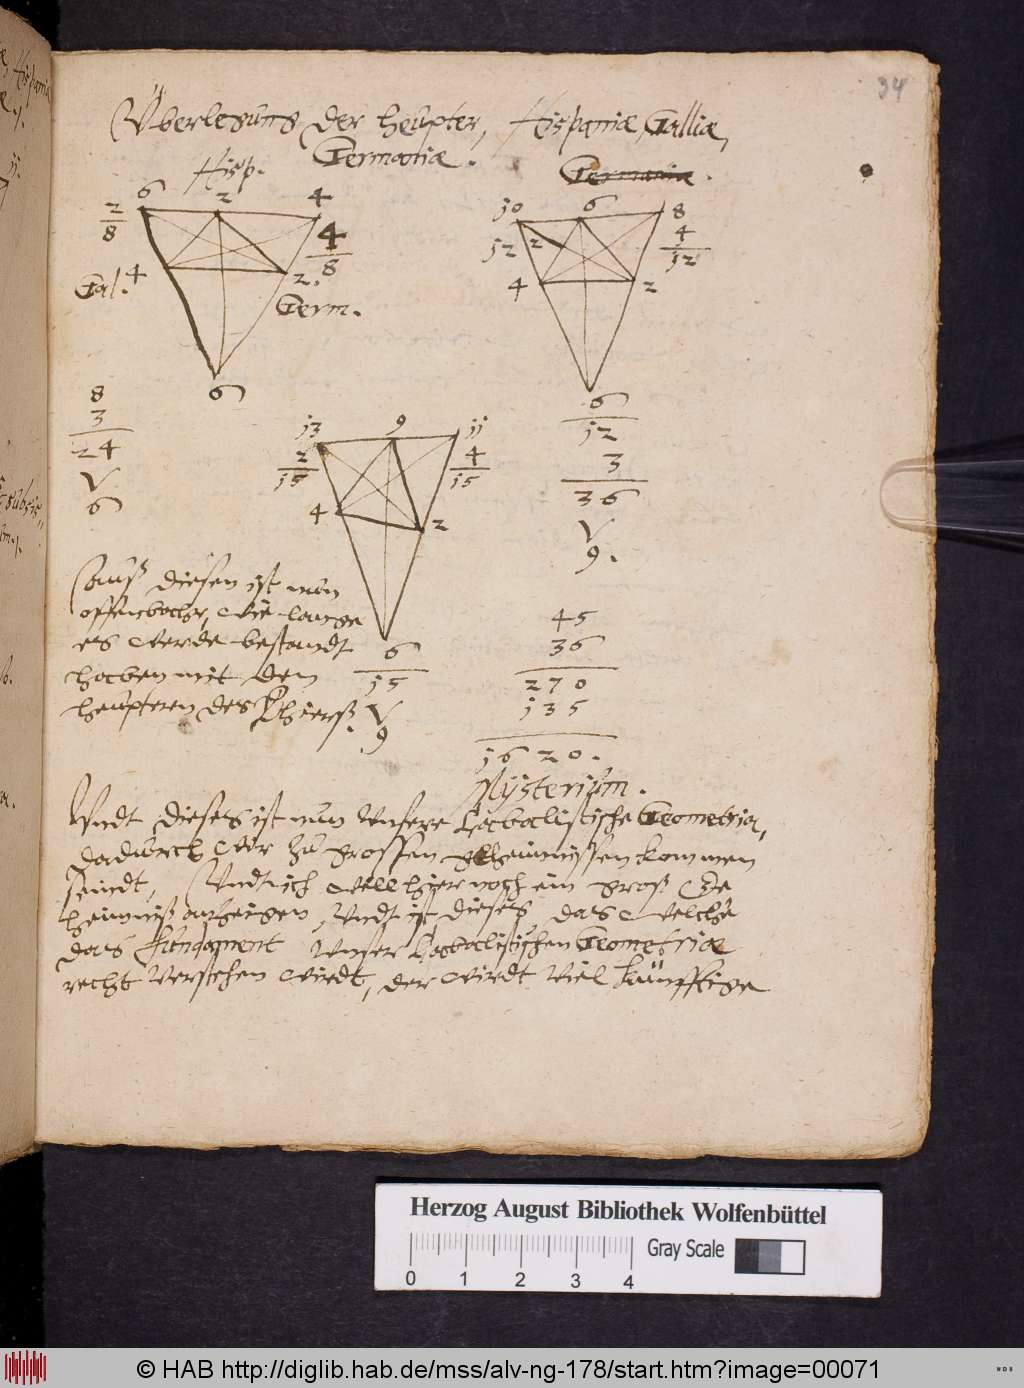 34
Überlegung der heupter, Hispaniæ, Galliæ,
Germaniæ.
Germaniæ.
Hisp.
6 2 4
2
8
4
8
Gal. 4
2.
Germ.
6
10 6 8
12 2
4
12
4 2
6
12
3
36
V
9.
8
3
24
V
6
13 9 11
2
15
4
15
4 2
6
15
V
9
Auß diesen ist nun
offenbahr, wie lange
es werde bestandt
haben mit den
heupteren des Thierß.
45
36
270
135
1620.
Mysterium.
Undt dieses ist nun unsere Cabalistische Geometria,
dadurch wir zu grossen geheimnissen kommen
seindt, Undt ich will hier noch ein groß Ge
heimniß anzeigen, Undt ist dieses, das welcher
das fundament unser Cabalistischen Geometriæ
recht verstehen wirdt, der wirdt viel künfftige
Herzog August Bibliothek Wolfenbüttel
Gray Scale
0 1 2 3 4
© HAB http://diglib.hab.de/mss/alv-ng-178/start.htm?image=00071